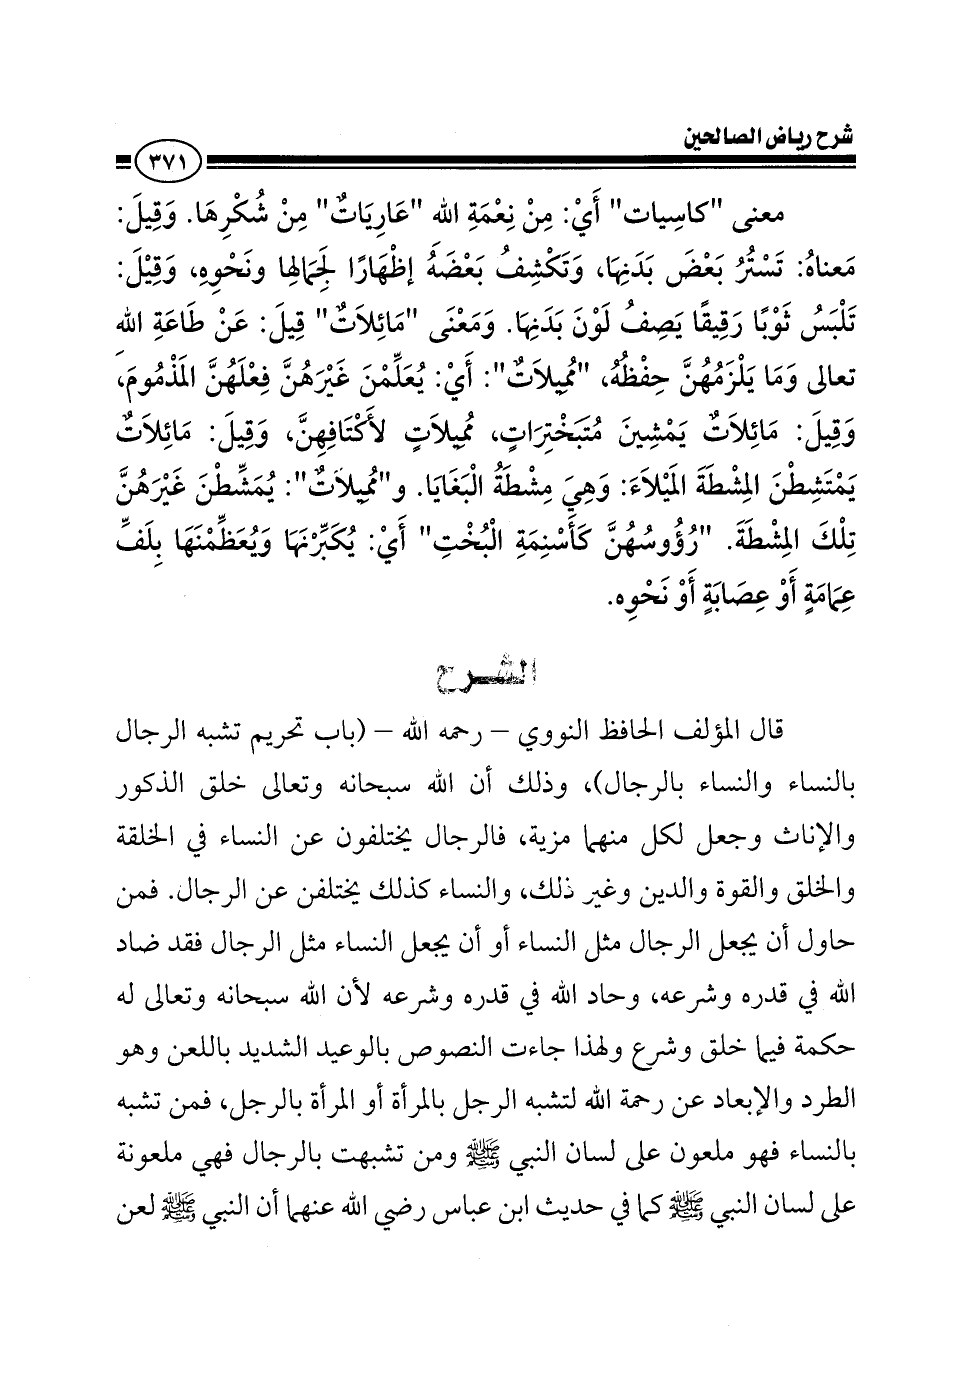 شرح رياض الصالحين
٣٧١
معنى "كاسِيات" أَيْ: مِنْ نِعْمَةِ الله "عَارِيَاتٌ" مِنْ شُكْرِهَا. وَقِيلَ:
مَعناهُ: تَسْتُرُ بَعْضَ بَدَنِهَا، وَتَكْشِفُ بَعْضَهُ إظْهَارًا لِجَمَالِها ونَحْوِهِ، وَقِيْلَ:
تَلْبَسُ ثَوْبًا رَقِيقًا يَصِفُ لَوْنَ بَدَنِهَا. وَمَعْنَى "مَائِلاَتٌ" قِيلَ: عَنْ طَاعَةِ اللهِ
تعالى وَمَا يَلْزَمُهُنَّ حِفْظُهُ، "مُمِيلاَتٌ": أَيْ: يُعَلِّمْنَ غَيْرَهُنَّ فِعْلَهُنَّ المَذْمُومَ،
وَقِيلَ: مَائِلاَتٌ يَمْشِينَ مُتَبَخْتِرَاتٍ، مُمِيلاَتٍ لأَكْتَافِهِنَّ، وَقِيلَ: مَائِلاَتٌ
يَمْتَشِطْنَ المِشْطَةَ المَيْلاَءَ: وَهِيَ مِشْطَةُ الْبَغَايَا. و"مُمِيلاَتٌ": يُمَشِّطْنَ غَيْرَهُنَّ
تِلْكَ المِشْطَةَ. "رُؤُوسُهُنَّ كَأَسْنِمَةِ الْبُخْتِ" أَيْ: يُكَبِّرْنَهَا وَيُعَظِّمْنَهَا بِلَفِّ
عِمَامَةٍ أَوْ عِصَابَةٍ أَوْ نَحْوِه.
الشرح
قال المؤلف الحافظ النووي – رحمه الله – (باب تحريم تشبه الرجال
بالنساء والنساء بالرجال)، وذلك أن الله سبحانه وتعالى خلق الذكور
والإناث وجعل لكل منهما مزية، فالرجال يختلفون عن النساء في الخلقة
والخلق والقوة والدين وغير ذلك، والنساء كذلك يختلفن عن الرجال. فمن
حاول أن يجعل الرجال مثل النساء أو أن يجعل النساء مثل الرجال فقد ضاد
الله في قدره وشرعه، وحاد الله في قدره وشرعه لأن الله سبحانه وتعالى له
حكمة فيما خلق وشرع ولهذا جاءت النصوص بالوعيد الشديد باللعن وهو
الطرد والإبعاد عن رحمة الله لتشبه الرجل بالمرأة أو المرأة بالرجل، فمن تشبه
بالنساء فهو ملعون على لسان النبي ﷺ ومن تشبهت بالرجال فهي ملعونة
على لسان النبي ﷺ كما في حديث ابن عباس رضي الله عنهما أن النبي ﷺ لعن